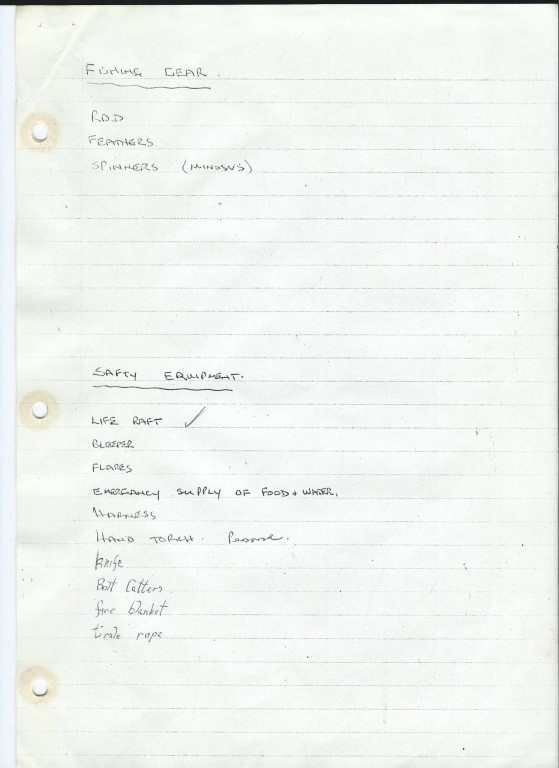 FISHING GEAR.
ROD
FEATHERS.
SPINNERS (MINOSUS)
SAFTY EQUIPMENT.
LIFE RAFT ✓
BLEEPER
FLARES
EMERGANCY SUPPLY OF FOOD + WATER.
HARNESS
HAND TORCH.
knife
Bolt Cutters.
fire blanket
rope